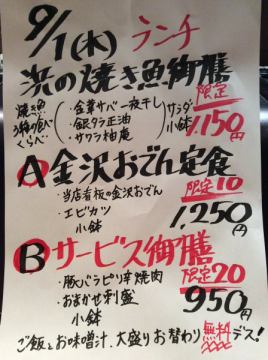 9/1(木) ランチ
浜の焼き魚御膳
焼き魚
3種の食べ
くらべ
・金華サバ一夜干し
・銀タラ正油
・サワラ柚庵
サラダ
小鉢
限定
1,150円
A 金沢おでん定食
・当店看板の金沢おでん
・エビカツ
小鉢
限定10
1,250円
B サービス御膳
・豚バラピリ辛焼肉
・おまかせ刺盛
小鉢
限定20
950円
ご飯とお味噌汁、大盛りお替わり無料デス!